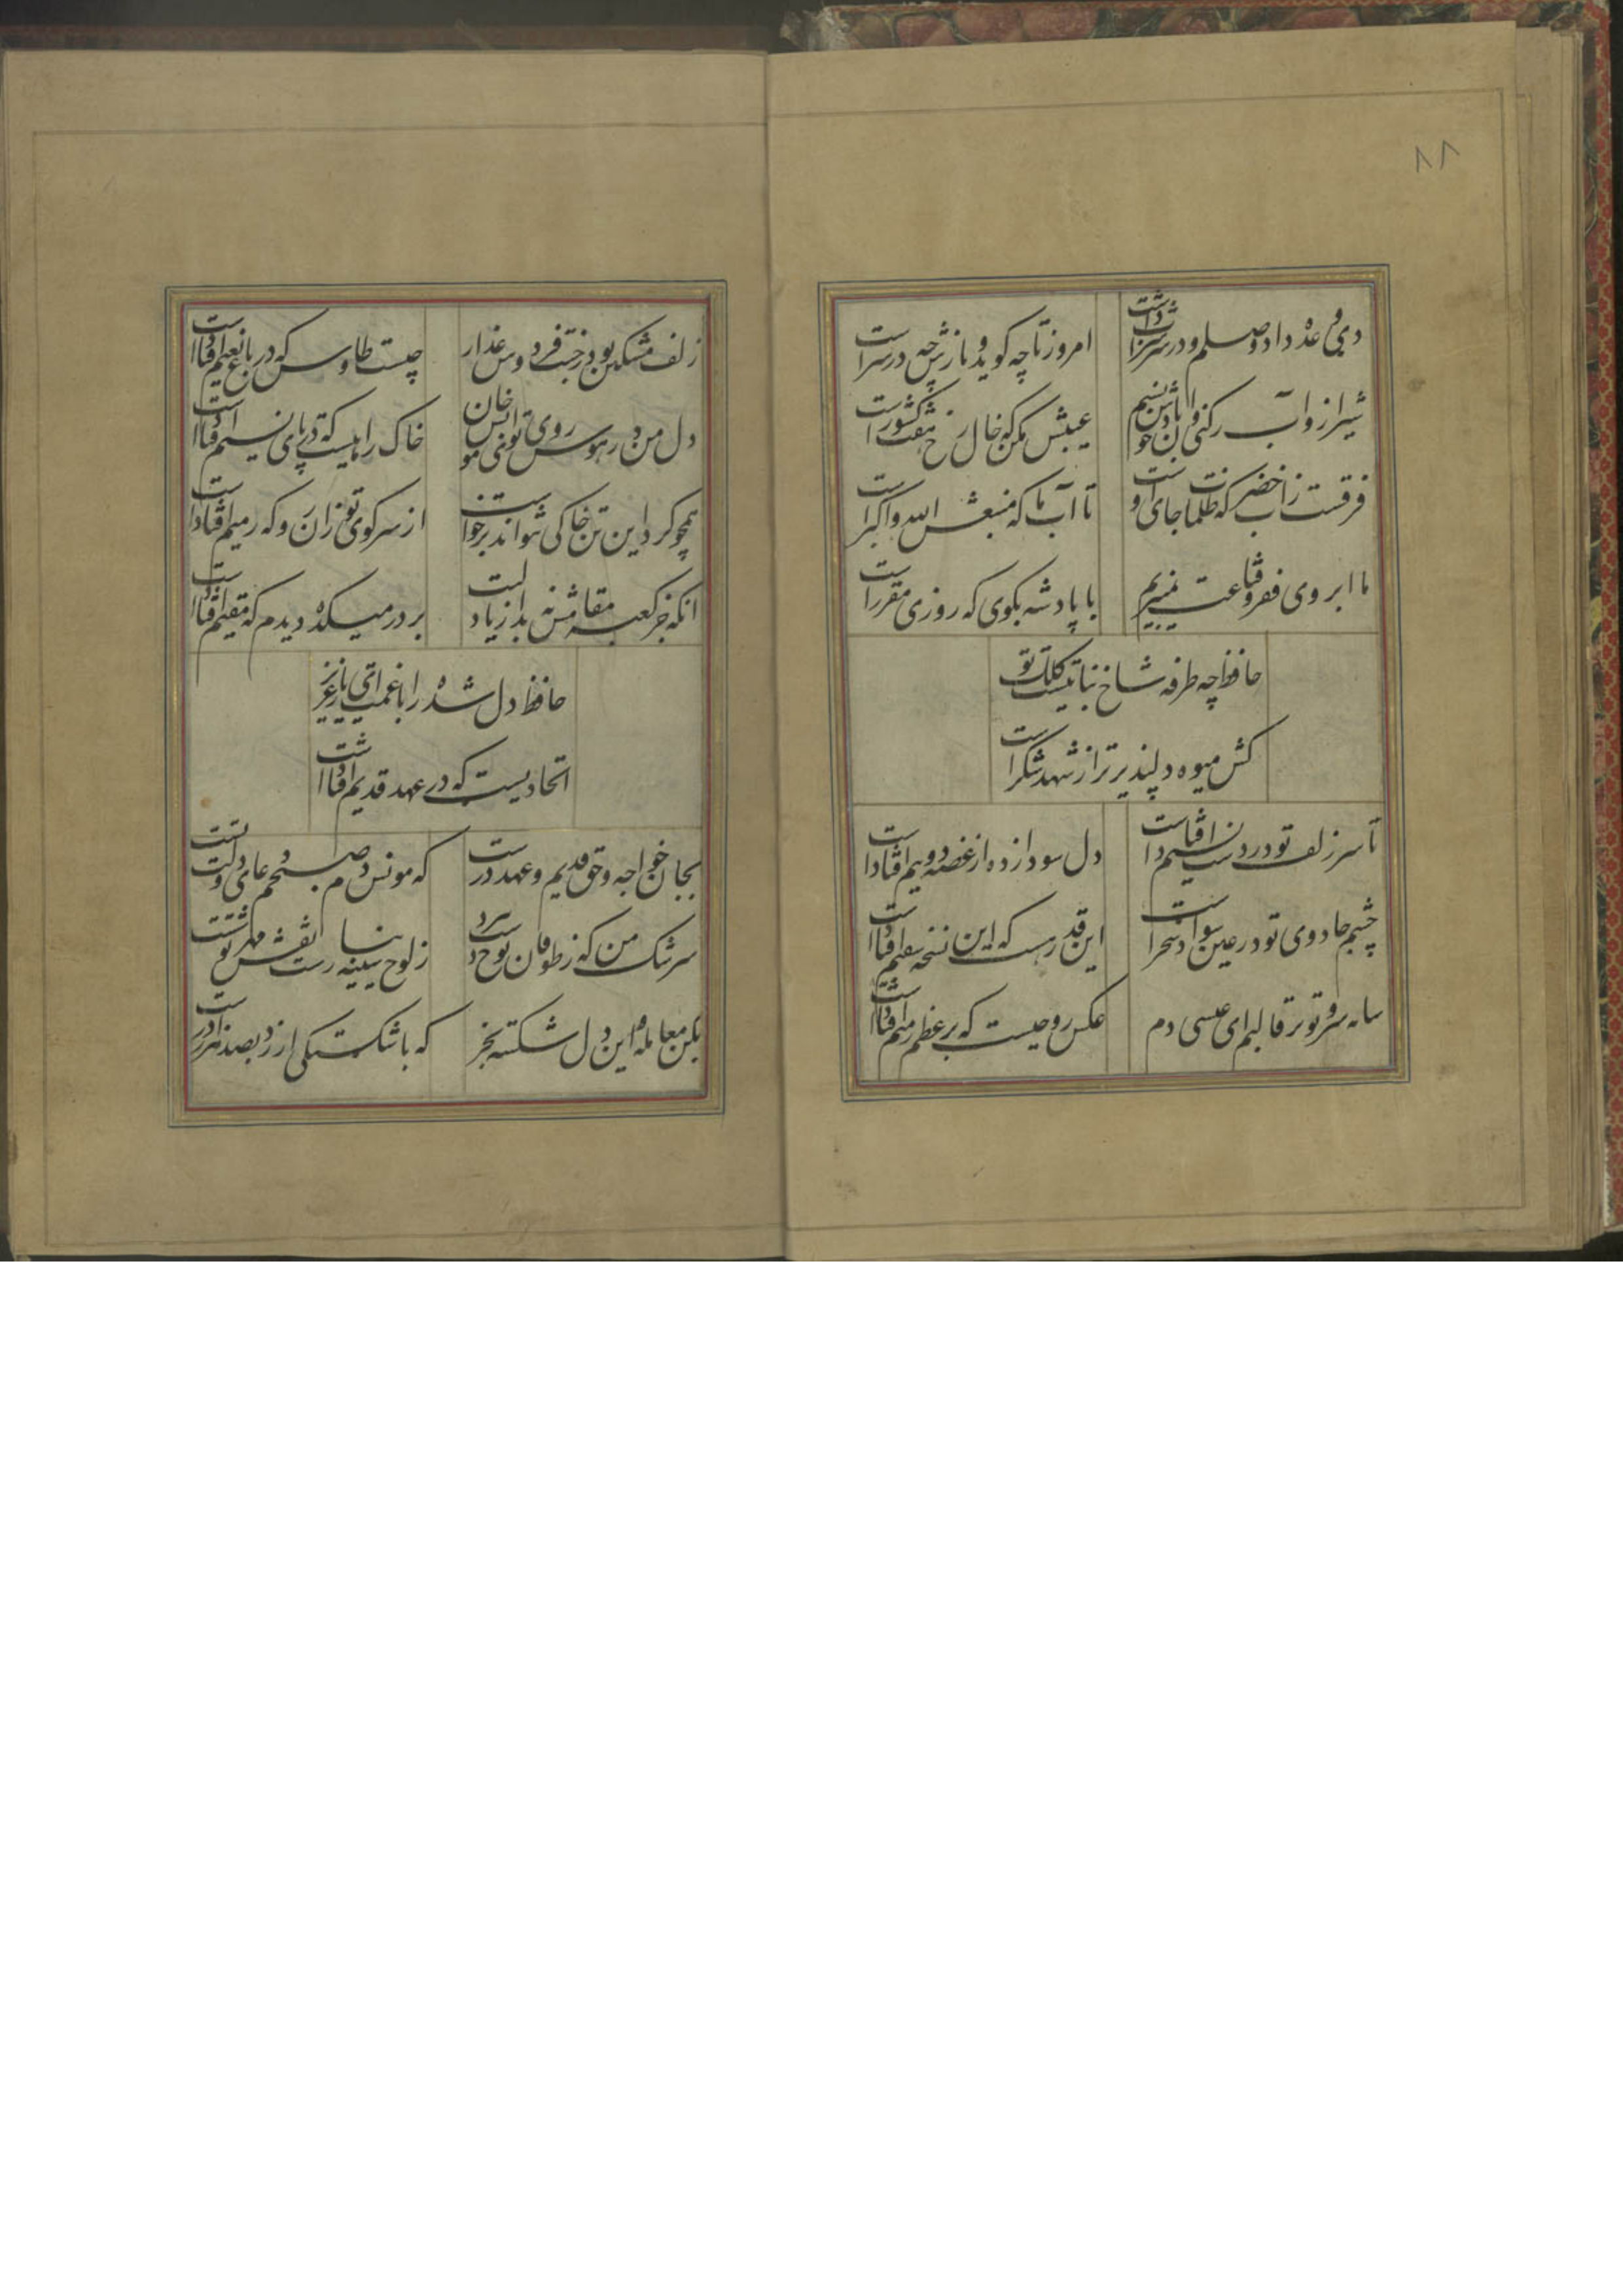 ۸۸
دی وعده داد وصلم و در سر شراب داشت
امروز تا چه گوید و بازش چه در سر است
شیراز و آب رکنی و این باد خوش نسیم
عیبش مکن که خال رخ هفت کشور است
فرقست ز آب خضر که ظلمات جای اوست
تا آب ما که منبعش الله و اکبر است
ما ابروی فقر و قناعت نمیبریم
با پادشه بکوی که روزی مقرر است
حافظ چه طرفه شاخ نباتیست کلک تو
کش میوه دلپذیرتر از شهد شکر است
تا سر زلف تو در دست نسیم افتاد است
دل سودازده از غصه دو نیم افتاد است
چشم جادوی تو در عین سواد سحر است
این قدر هست که این نسخه سقیم افتاد است
سایه سرو تو بر قالبم ای عیسی دم
عکس روحیست که بر عظم رمیم افتاد است
زلف مشکین بو در جنت فردوس عذار
چیست طاوس که در باغ نعیم افتاد است
دل من در هوس روی تو ای مونس جان
خاک راهیست که در پای نسیم افتاد است
همچو کرد این تن خاکی نتواند برخواست
از سر کوی تو زان رو که رمیم افتاد است
انکه جز کعبه مقامش نه بد از یاد لبت
بر در میکده دیدم که مقیم افتاد است
حافظ دل شده را با غمت ای یار عزیز
اتحادیست که در عهد قدیم افتاد است
بجان خواجه و حق قدیم و عهد درست
که مونس دم صبحم دعای دولت تست
سرشک من که ز طوفان نوح دست برد
ز لوح سینه نیارست نقش مهر تو شست
بکن معامله و این دل شکسته بخر
که با شکستکی ارزد بصد هزار درست